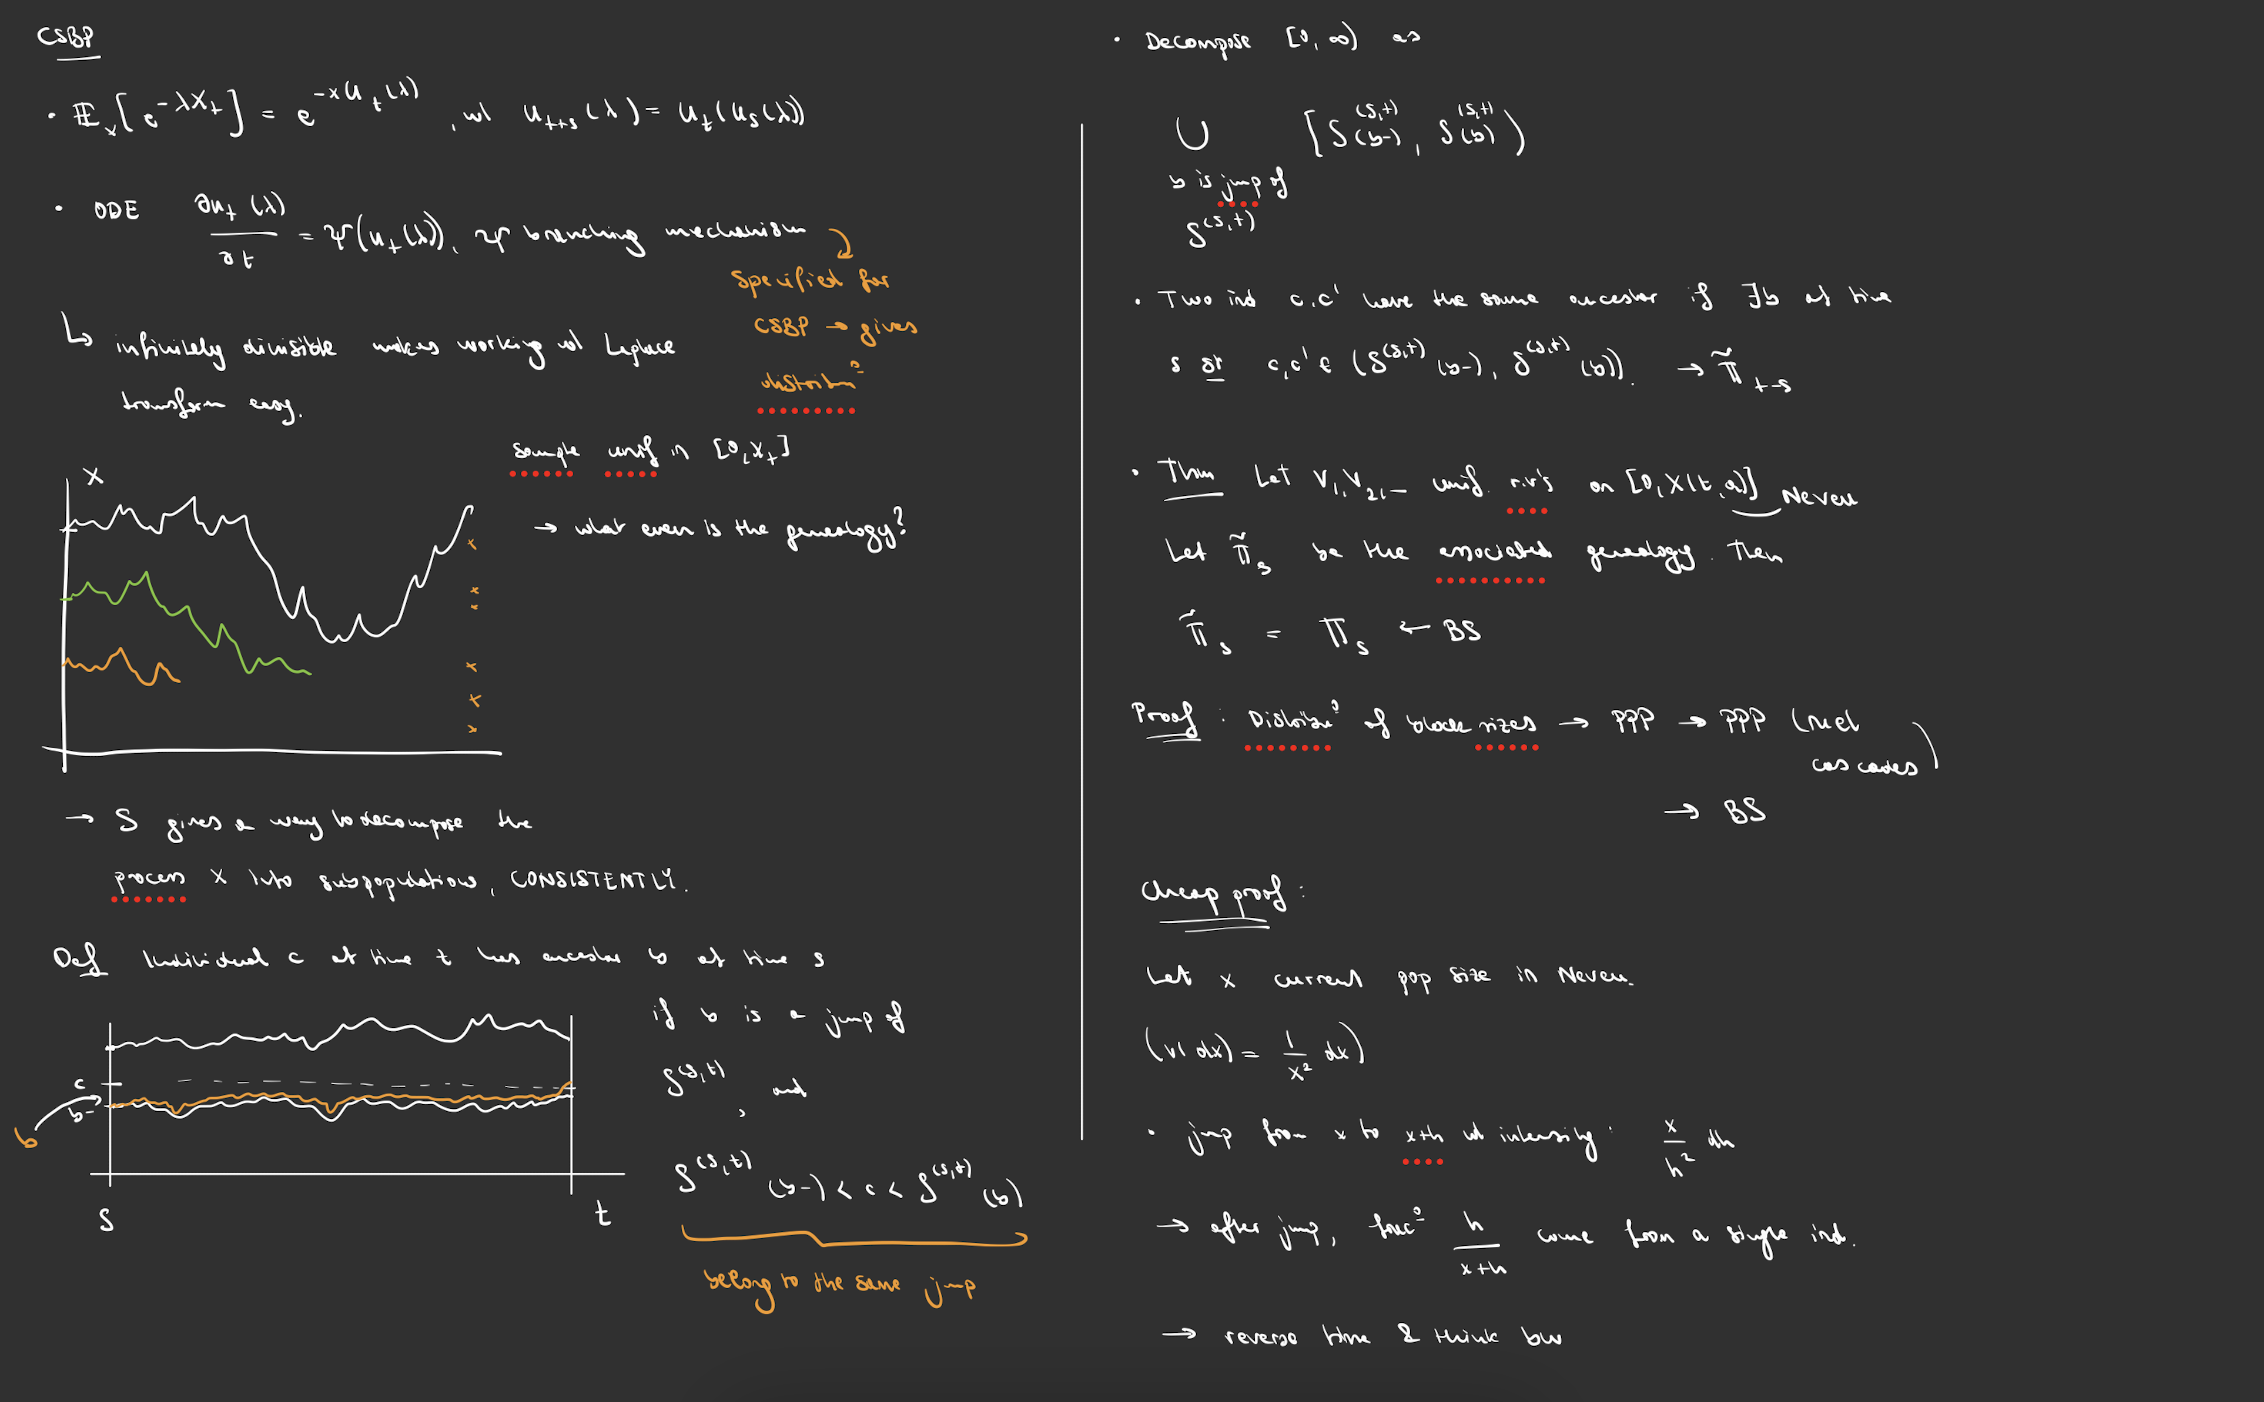 CSBP
• 𝔼ₓ[e^{-λX_t}] = e^{-x u_t(λ)}, w/ u_{t+s}(λ) = u_t(u_s(λ))
• ODE ∂u_t(λ)/∂t = Ψ(u_t(λ)), Ψ branching mechanism
specified for
CSBP → gives
distribⁿ
↳ infinitely divisible makes working w/ Laplace
transform easy.
sample unif in [0, X_t]
→ what even is the genealogy?
X
→ S gives a way to decompose the
process X into subpopulations, CONSISTENTLY.
Def Individual c at time t has ancestor b at time s
if b is a jump of
S^{(s,t)}, and
S^{(s,t)}(b-) < c < S^{(s,t)}(b)
belong to the same jump
c
b-
b
s
t
• Decompose [0, ∞) as
∪ [S^{(s,t)}(b-), S^{(s,t)}(b))
b is jump of
S^{(s,t)}
• Two ind c, c' have the same ancestor if ∃b at time
s st c, c' ∈ (S^{(s,t)}(b-), S^{(s,t)}(b)). → Π̃_{t-s}
• Thm Let V₁, V₂, – unif. r.v's on [0, X(t, a)] Neveu
Let Π̃_s be the associated genealogy. Then
Π̃_s = Π_s ← BS
Proof: Distribⁿ of block sizes → PPP → PPP (ruel
cascades)
→ BS
Cheap proof:
Let x current pop size in Neveu.
(ν(dx) = 1/x² dx)
• jump from x to x+h w/ intensity: x/h² dh
→ after jump, fracⁿ h/(x+h) come from a single ind.
→ reverse time & think bw